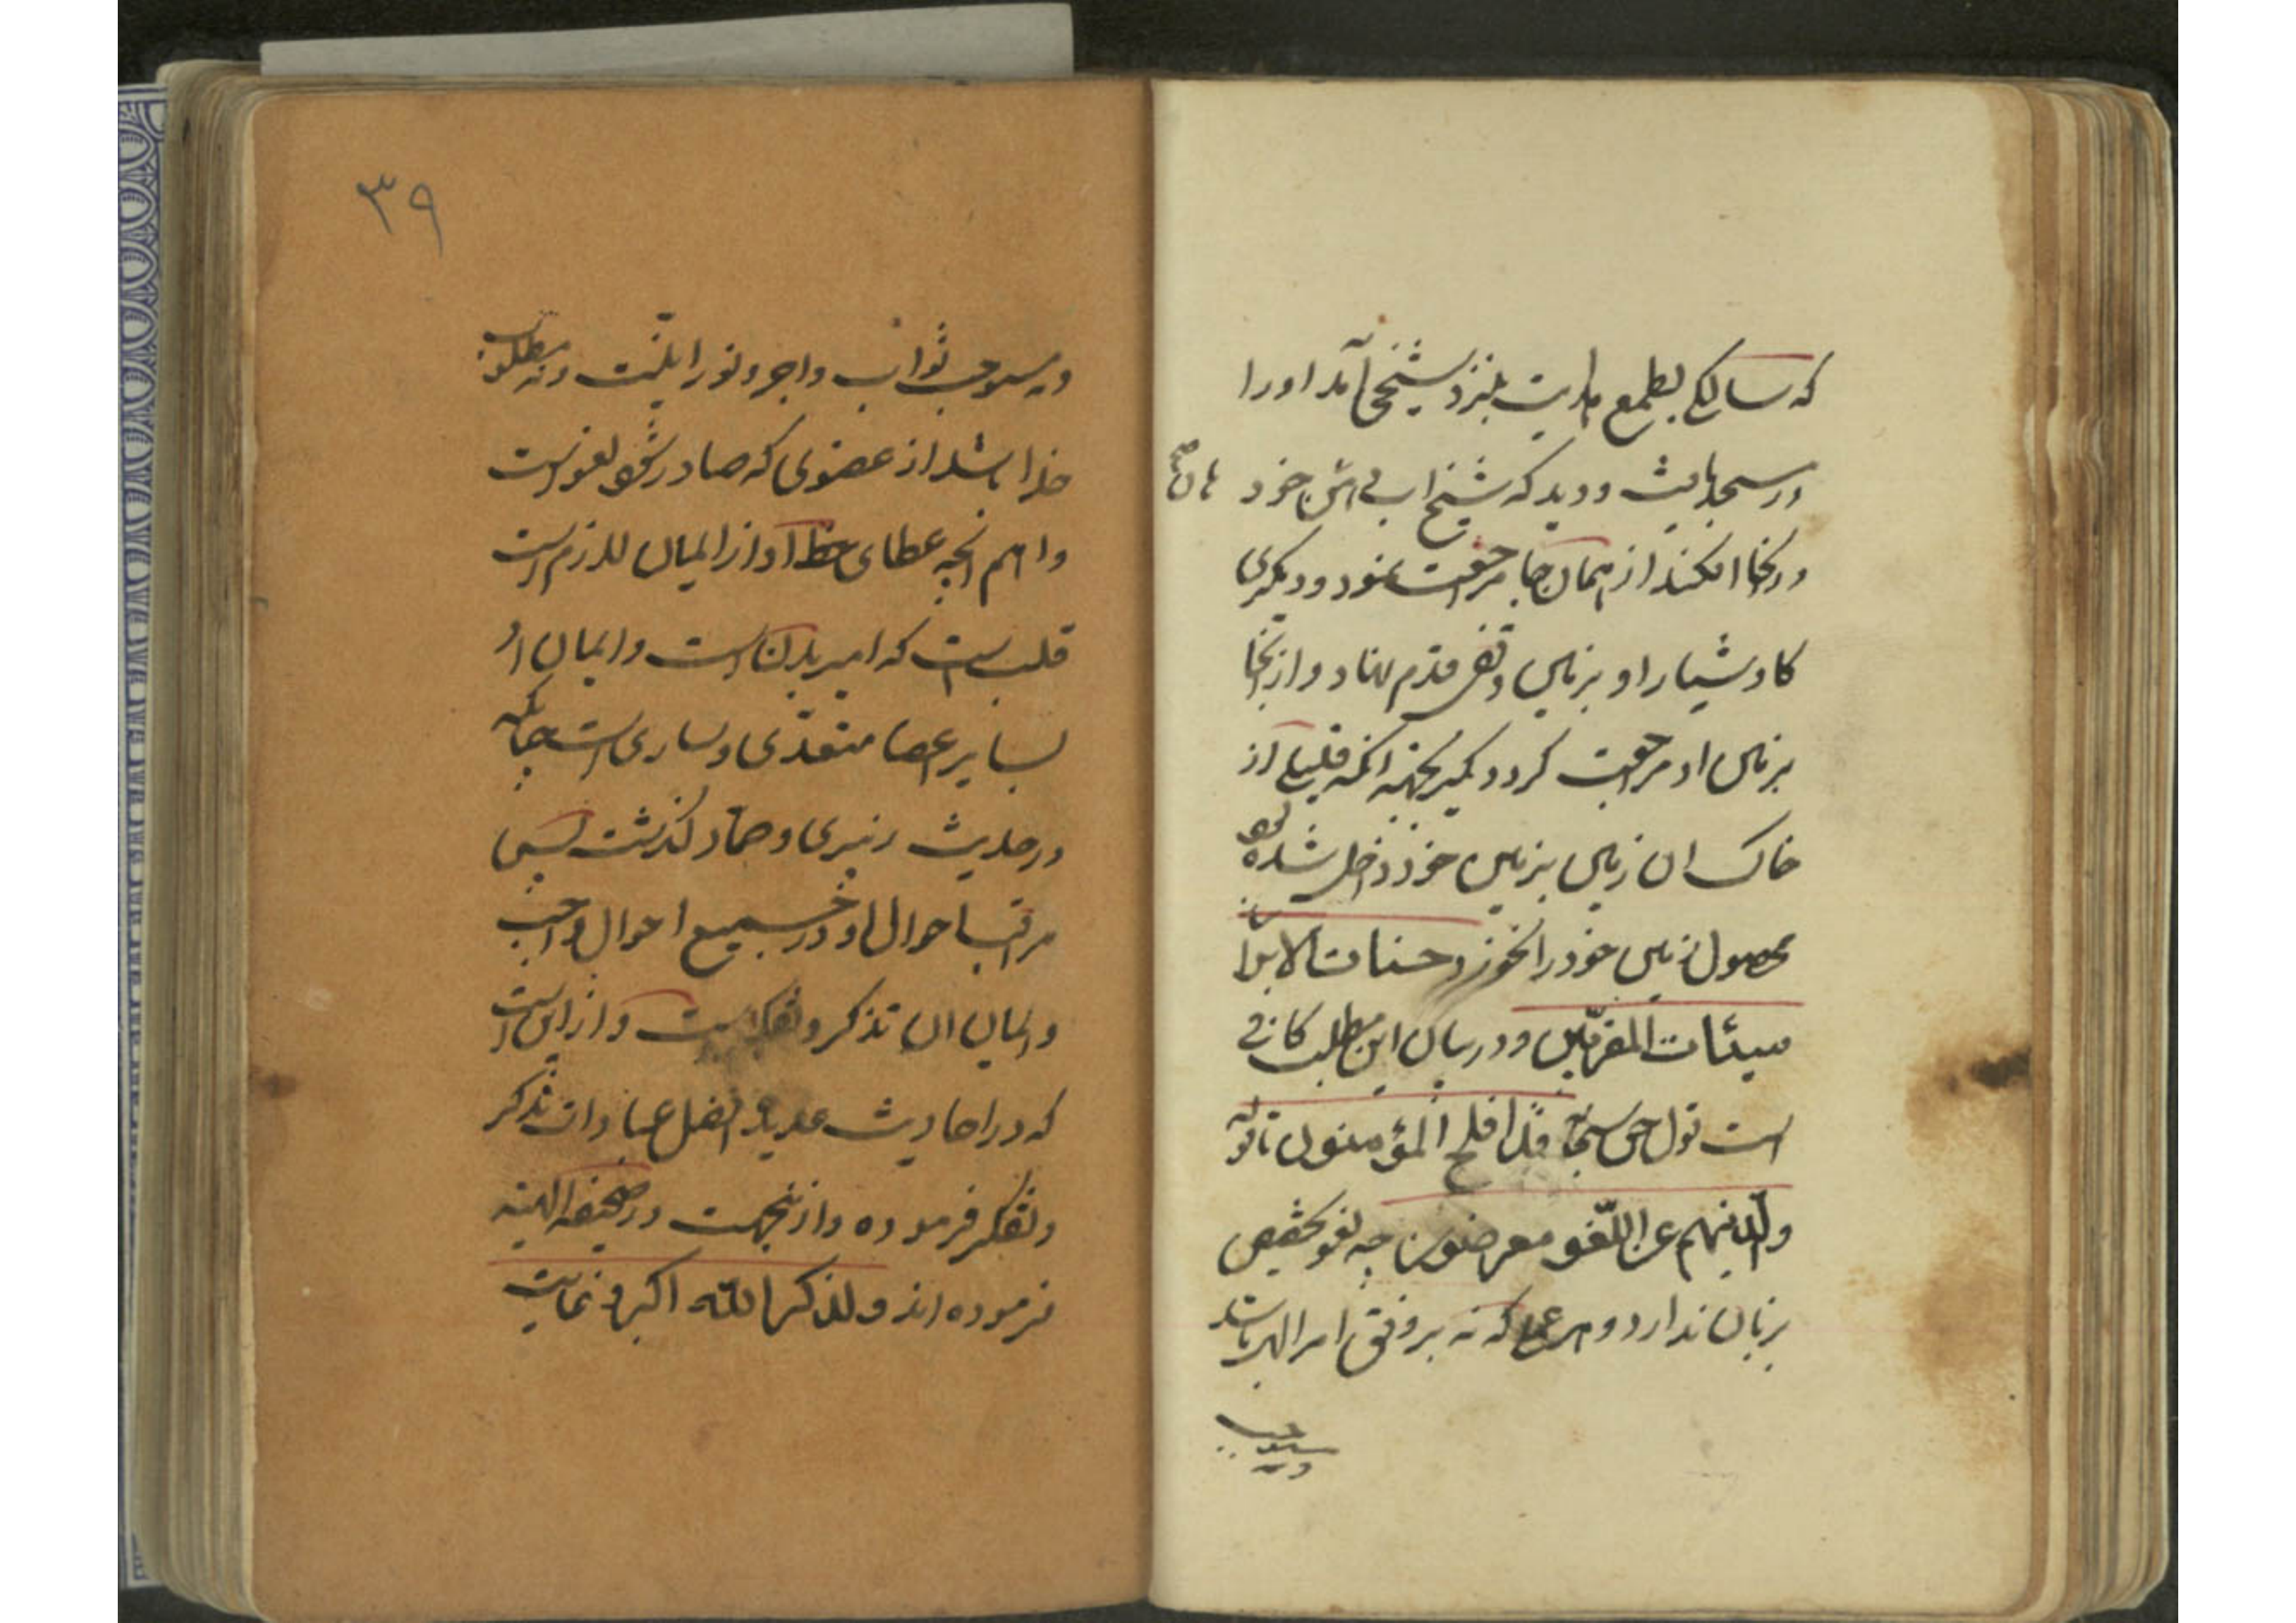 که سالکی بطمع هدایت بنزد شیخی آمد او را
در مسجد یافت و دید که شیخ اب دهن خود
در انجا افکند از همان جا مراجعت نمود و دیگری
کاو شیار او بزمین وقفی قدم نهاد و از انجا
بزمین او مراجعت کرد دیگر بجهة انکه قلیلی از
خاک ان زمین بزمین خود داخل شده بود
محصول زمین خود را نخورد حسنات الابرار
سیئات المقربین و در بیان این مطلب کافی
است قول حق سبحانه قد افلح المؤمنون تا قوله
والذینهم عن اللّغو معرضون چه لغو تخصیص
بزبان ندارد و هر عملی که نه بر وفق امر الهی باشد
و نه موجب
۳۹
و نه موجب ثواب و اجر و نورانیّت و نه مطلوب
خدا باشد از عضوی که صادر شود لغو است
و اهم انچه عطای حظ او از ایمان لازم است
قلب است که امیر بدن است و ایمان او
بسایر اعضا متعدّی و ساری است چنانکه
در حدیث زبیری و حمّاد گذشت پس
مراقبت احوال او در جمیع احوال واجب
و ایمان ان تذکر و تفکر است و از این است
که در احادیث عدیده افضل عبادات تذکر
و تفکر فرموده و از اینجهت در صحیفه الهیّه
فرموده اند ولذکر الله اکبر و نهایت